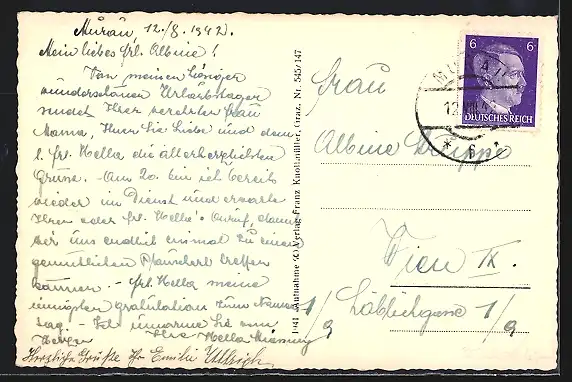 Murau, 12./8. 1942.
Mein liebes Frl. Albine!
Von meinen
wunderschönen Urlaubstagen
sendet Ihrer verehrten Frau
Mama, Ihnen Sie Liebe und dem
l. Frl. Hella die allerherzlichsten
Grüsse. - Am 20. bin ich bereits
wieder im Dienst und erwarte
Ihren oder Frl. Hella's Anruf, damit
wir uns endlich einmal zu einem
gemütlichen treffen
können. - Frl. Hella meine
innigsten Gratulation zum Namens-
tag. - Ich umarme Sie
Ihre Hella
Herzliche Grüße Ihr Emilie Ullrich
1041 Aufnahme u. Verlag Franz Knollmüller, Graz, Nr. 545/147
6 6
DEUTSCHES REICH
MURAU
12.VIII.42
* 6 *
Frau
Albine
Wien IX.
1/9
1/9